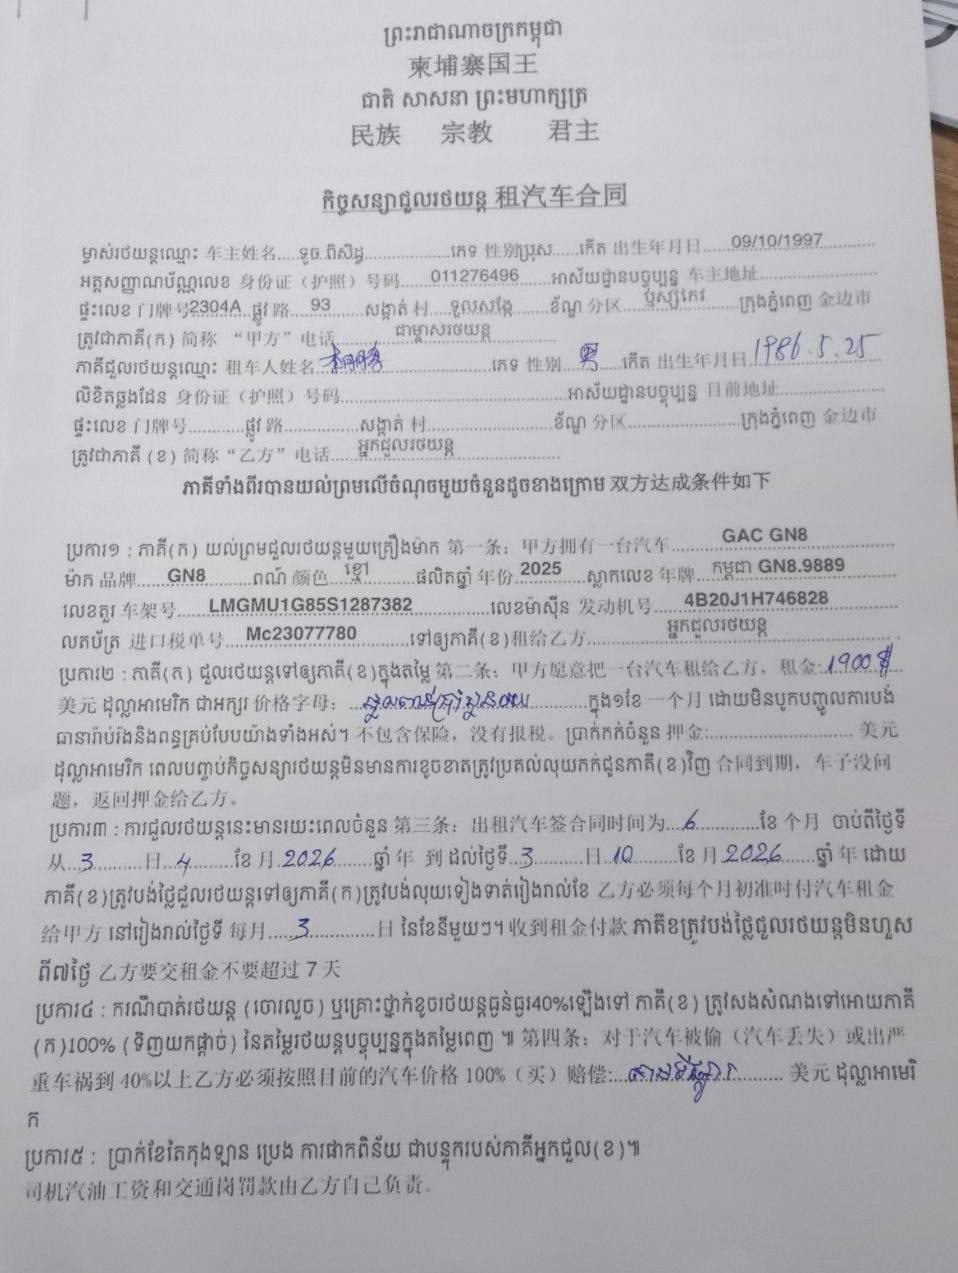 ព្រះរាជាណាចក្រកម្ពុជា
柬埔寨国王
ជាតិ សាសនា ព្រះមហាក្សត្រ
民族 宗教 君主
កិច្ចសន្យាជួលរថយន្ត 租汽车合同
ម្ចាស់រថយន្តឈ្មោះ 车主姓名....ទូច.ពិសិដ្ឋ............ភេទ 性别ប្រុស.....កើត 出生年月日....09/10/1997..........
អត្តសញ្ញាណប័ណ្ណលេខ 身份证（护照）号码......011276496.......អាស័យដ្ឋានបច្ចុប្បន្ន 车主地址..................
ផ្ទះលេខ 门牌号2304A ផ្លូវ 路....93......សង្កាត់ 村....ទួលសង្កែ.......ខ័ណ្ឌ 分区....ឬស្សីកែវ......ក្រុងភ្នំពេញ 金边市
ត្រូវជាភាគី(ក) 简称 “甲方” 电话...........ជាម្ចាស់រថយន្ត.............
ភាគីជួលរថយន្តឈ្មោះ 租车人姓名.....................ភេទ 性别...男....កើត 出生年月日.1986.5.25
លិខិតឆ្លងដែន 身份证（护照）号码..............................................អាស័យដ្ឋានបច្ចុប្បន្ន 目前地址..................
ផ្ទះលេខ 门牌号...........ផ្លូវ 路...............សង្កាត់ 村.........................ខ័ណ្ឌ 分区......................ក្រុងភ្នំពេញ 金边市
ត្រូវជាភាគី (ខ) 简称“乙方” 电话.....អ្នកជួលរថយន្ត.....................
ភាគីទាំងពីរបានយល់ព្រមលើចំណុចមួយចំនួនដូចខាងក្រោម 双方达成条件如下
ប្រការ១ : ភាគី(ក) យល់ព្រមជួលរថយន្តមួយគ្រឿងម៉ាក 第一条：甲方拥有一台汽车..........GAC GN8..............
ម៉ាក 品牌......GN8.........ពណ៌ 颜色...ខ្មៅ..........ផលិតឆ្នាំ 年份.2025......ស្លាកលេខ 年牌...កម្ពុជា GN8.9889..........
លេខតួរ 车架号......LMGMU1G85S1287382..............លេខម៉ាស៊ីន 发动机号......4B20J1H746828............
លតប័ត្រ 进口税单号...Mc23077780..........ទៅឲ្យភាគី(ខ)租给乙方..............អ្នកជួលរថយន្ត......................
ប្រការ២ : ភាគី(ក) ជួលរថយន្តទៅឲ្យភាគី(ខ)ក្នុងតម្លៃ 第二条：甲方愿意把一台汽车租给乙方、租金:1900$
美元 ដុល្លាអាមេរិក ជាអក្សរ 价格字母：..............................ក្នុង១ខែ 一个月 ដោយមិនបូកបញ្ចូលការបង់
ធានារ៉ាប់រ៉ងនិងពន្ធគ្រប់បែបយ៉ាងទាំងអស់។ 不包含保险，没有报税。ប្រាក់កក់ចំនួន 押金:............................ 美元
ដុល្លាអាមេរិក ពេលបញ្ចប់កិច្ចសន្យារថយន្តមិនមានការខូចខាតត្រូវប្រគល់លុយកក់ជូនភាគី(ខ)វិញ 合同到期，车子没问
题，返回押金给乙方。
ប្រការ៣ : ការជួលរថយន្តនេះមានរយះពេលចំនួន 第三条：出租汽车签合同时间为...6............ខែ 个月 ចាប់ពីថ្ងៃទី
从...3..........日...4........ខែ 月.2026.......ឆ្នាំ 年 到 ដល់ថ្ងៃទី..3..........日.10..........ខែ 月 2026......ឆ្នាំ 年 ដោយ
ភាគី(ខ)ត្រូវបង់ថ្លៃជួលរថយន្តទៅឲ្យភាគី(ក)ត្រូវបង់លុយទៀងទាត់រៀងរាល់ខែ 乙方必须每个月初准时付汽车租金
给甲方 នៅរៀងរាល់ថ្ងៃទី 每月.....3................日 នៃខែនីមួយៗ។ 收到租金付款 ភាគីខត្រូវបង់ថ្លៃជួលរថយន្តមិនហួស
ពី៧ថ្ងៃ 乙方要交租金不要超过 7 天
ប្រការ៤ : ករណីបាត់រថយន្ត (ចោរលួច) ឬគ្រោះថ្នាក់ខូចរថយន្តធ្ងន់ធ្ងរ40%ឡើងទៅ ភាគី(ខ) ត្រូវសងសំណងទៅអោយភាគី
(ក)100% (ទិញយកផ្តាច់) នៃតម្លៃរថយន្តបច្ចុប្បន្នក្នុងតម្លៃពេញ ៕ 第四条：对于汽车被偷（汽车丢失）或出严
重车祸到 40%以上乙方必须按照目前的汽车价格 100%（买）赔偿:............................ 美元 ដុល្លាអាមេរិ
ក
ប្រការ៥ : ប្រាក់ខែតៃកុងឡាន ប្រេង ការផាកពិន័យ ជាបន្ទុករបស់ភាគីអ្នកជួល(ខ)៕
司机汽油工资和交通岗罚款由乙方自己负责。